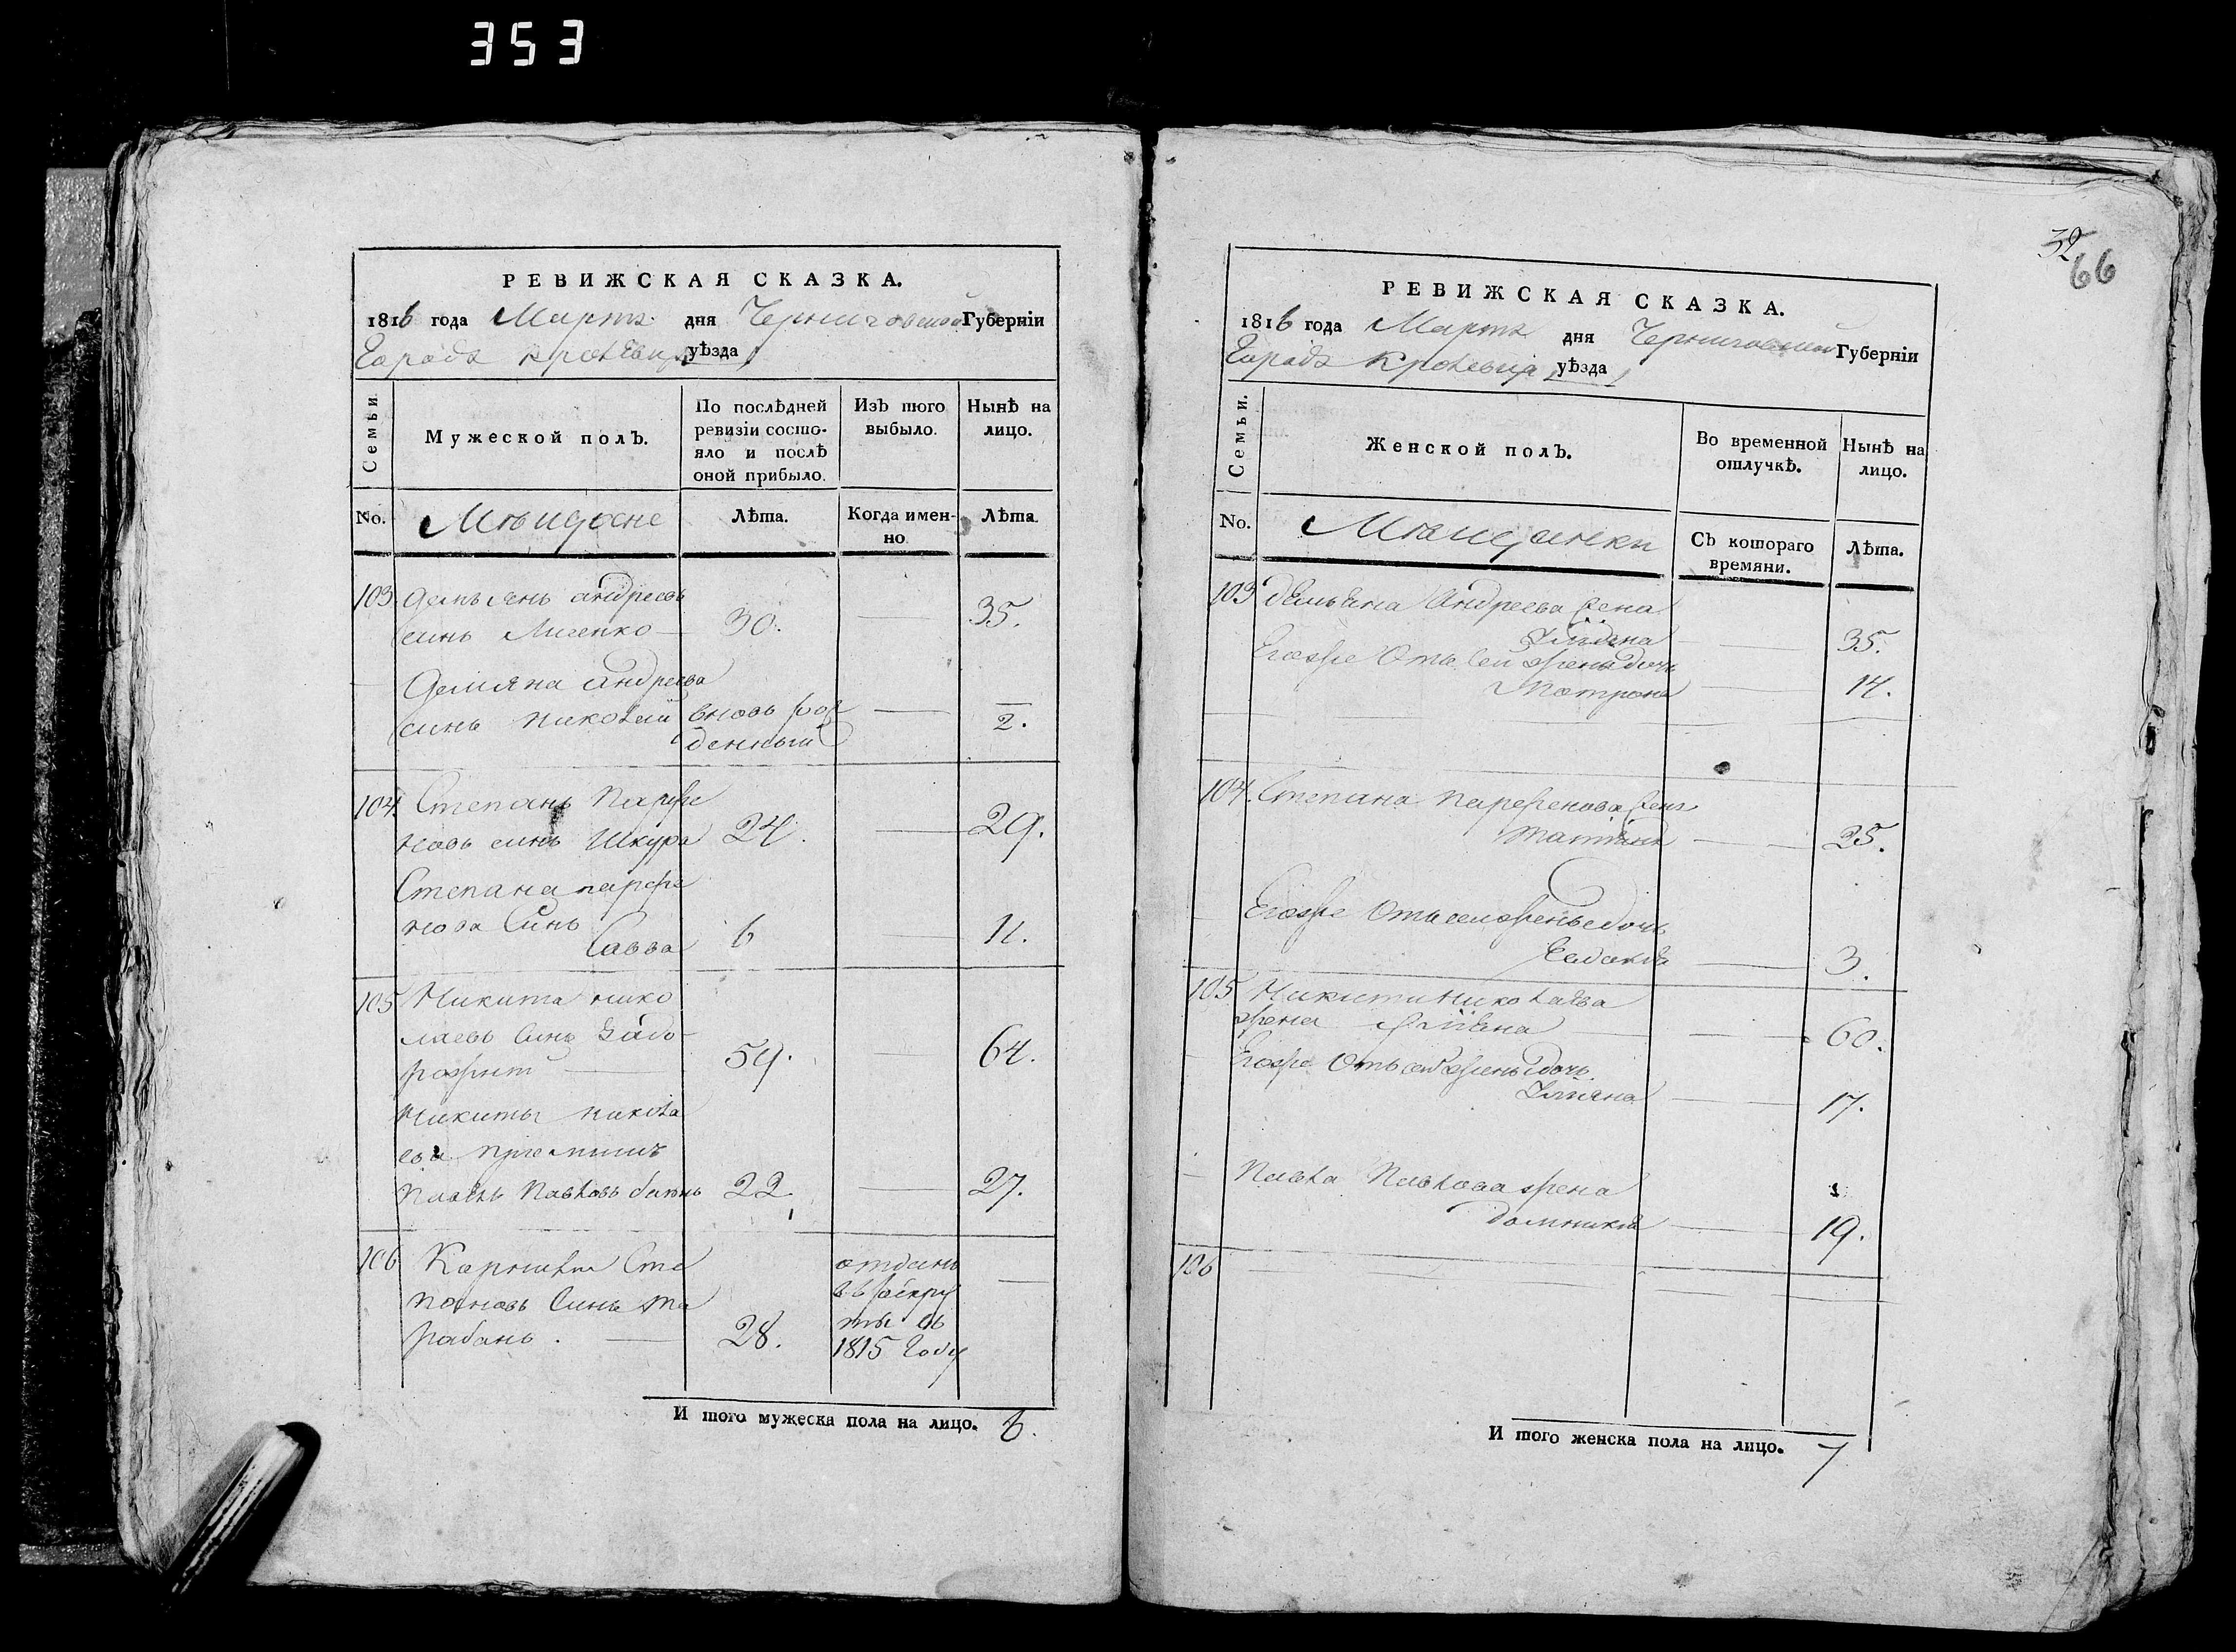 353
РЕВИЖСКАЯ СКАЗКА.
1816 года Марта дня Черниговской Губерніи
Города Кролевца уѣзда
Семьи
Мужеской полъ.
По послѣдней ревизіи состояло и послѣ оной прибыло.
Изъ того выбыло.
Нынѣ на лицо.
No.
Мѣщане
Лѣта.
Когда именно
Лѣта.
103 Демьянъ Андреевъ
синъ 30. — 35.
Демяна Андреева
синъ Николай вновь рож
денный — 2.
104. Степанъ Парфе
новъ синъ Шкура 24. — 29.
Степана парфе
нова Синъ
Савва 6 — 11.
105 Никита нико
лаевъ Синъ
59. — 64.
Никиты никола
ева приемишъ
Павелъ Павловъ 22. — 27.
106 Сте
пановъ Синъ Та
рабанъ. — 28.
отданъ
въ рекру
ты въ
1815 Году —
И того мужеска пола на лицо. 6.
32
66
РЕВИЖСКАЯ СКАЗКА.
1816 года Марта дня Черниговской Губерніи
Города Кролевца уѣзда
Семьи.
Женской полъ.
Во временной отлучкѣ.
Нынѣ на лицо.
No.
Мѣщанки
Съ котораго времяни.
Лѣта.
103 Демьяна Андреева жена
— 35.
Егоже Отъ сей жены дочь
Мотрона — 14.
104. Степана парфенова жена
Татіана — 25.
Егоже Отъ сей жены дочь
Евдокія — 3.
105 Никити Николаева
жена — 60.
Егоже Отъ сей жены дочь
Уліяна — 17.
Павла Павлова жена
Домникія — 19.
106
И того женска пола на лицо. 7